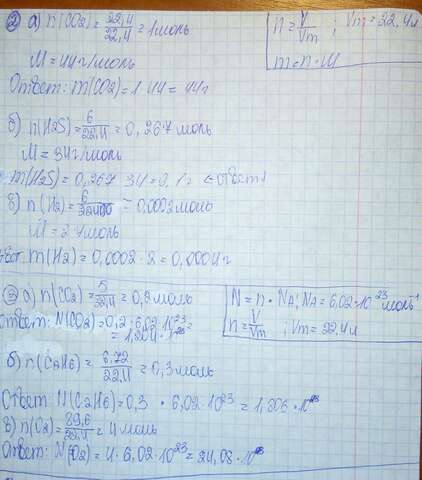 ② а) n(CO2)=22,4/22,4=1 моль
n=V/Vm ; Vm=22,4 л
m=n·M
M=44 г/моль
Ответ: m(CO2)=1·44=44г
б) n(H2S)=6/22,4=0,267 моль
M=34 г/моль
m(H2S)=0,267·34=9,1г ←ответ
в) n(H2)=6/22400=0,0002 моль
M=2 г/моль
m(H2)=0,0002·2=0,0004г
③ а) n(CO2)=5/22,4=0,2 моль
N=n·NA; NA=6,02·10²³ моль⁻¹
n=V/Vm ; Vm=22,4 л
Ответ: N(CO2)=0,2·6,02·10²³=
=1,204·10²³
б) n(C2H6)=6,72/22,4=0,3 моль
Ответ N(C2H6)=0,3·6,02·10²³=1,806·10²³
в) n(O2)=89,6/22,4=4 моль
Ответ: N(O2)=4·6,02·10²³=24,08·10²³